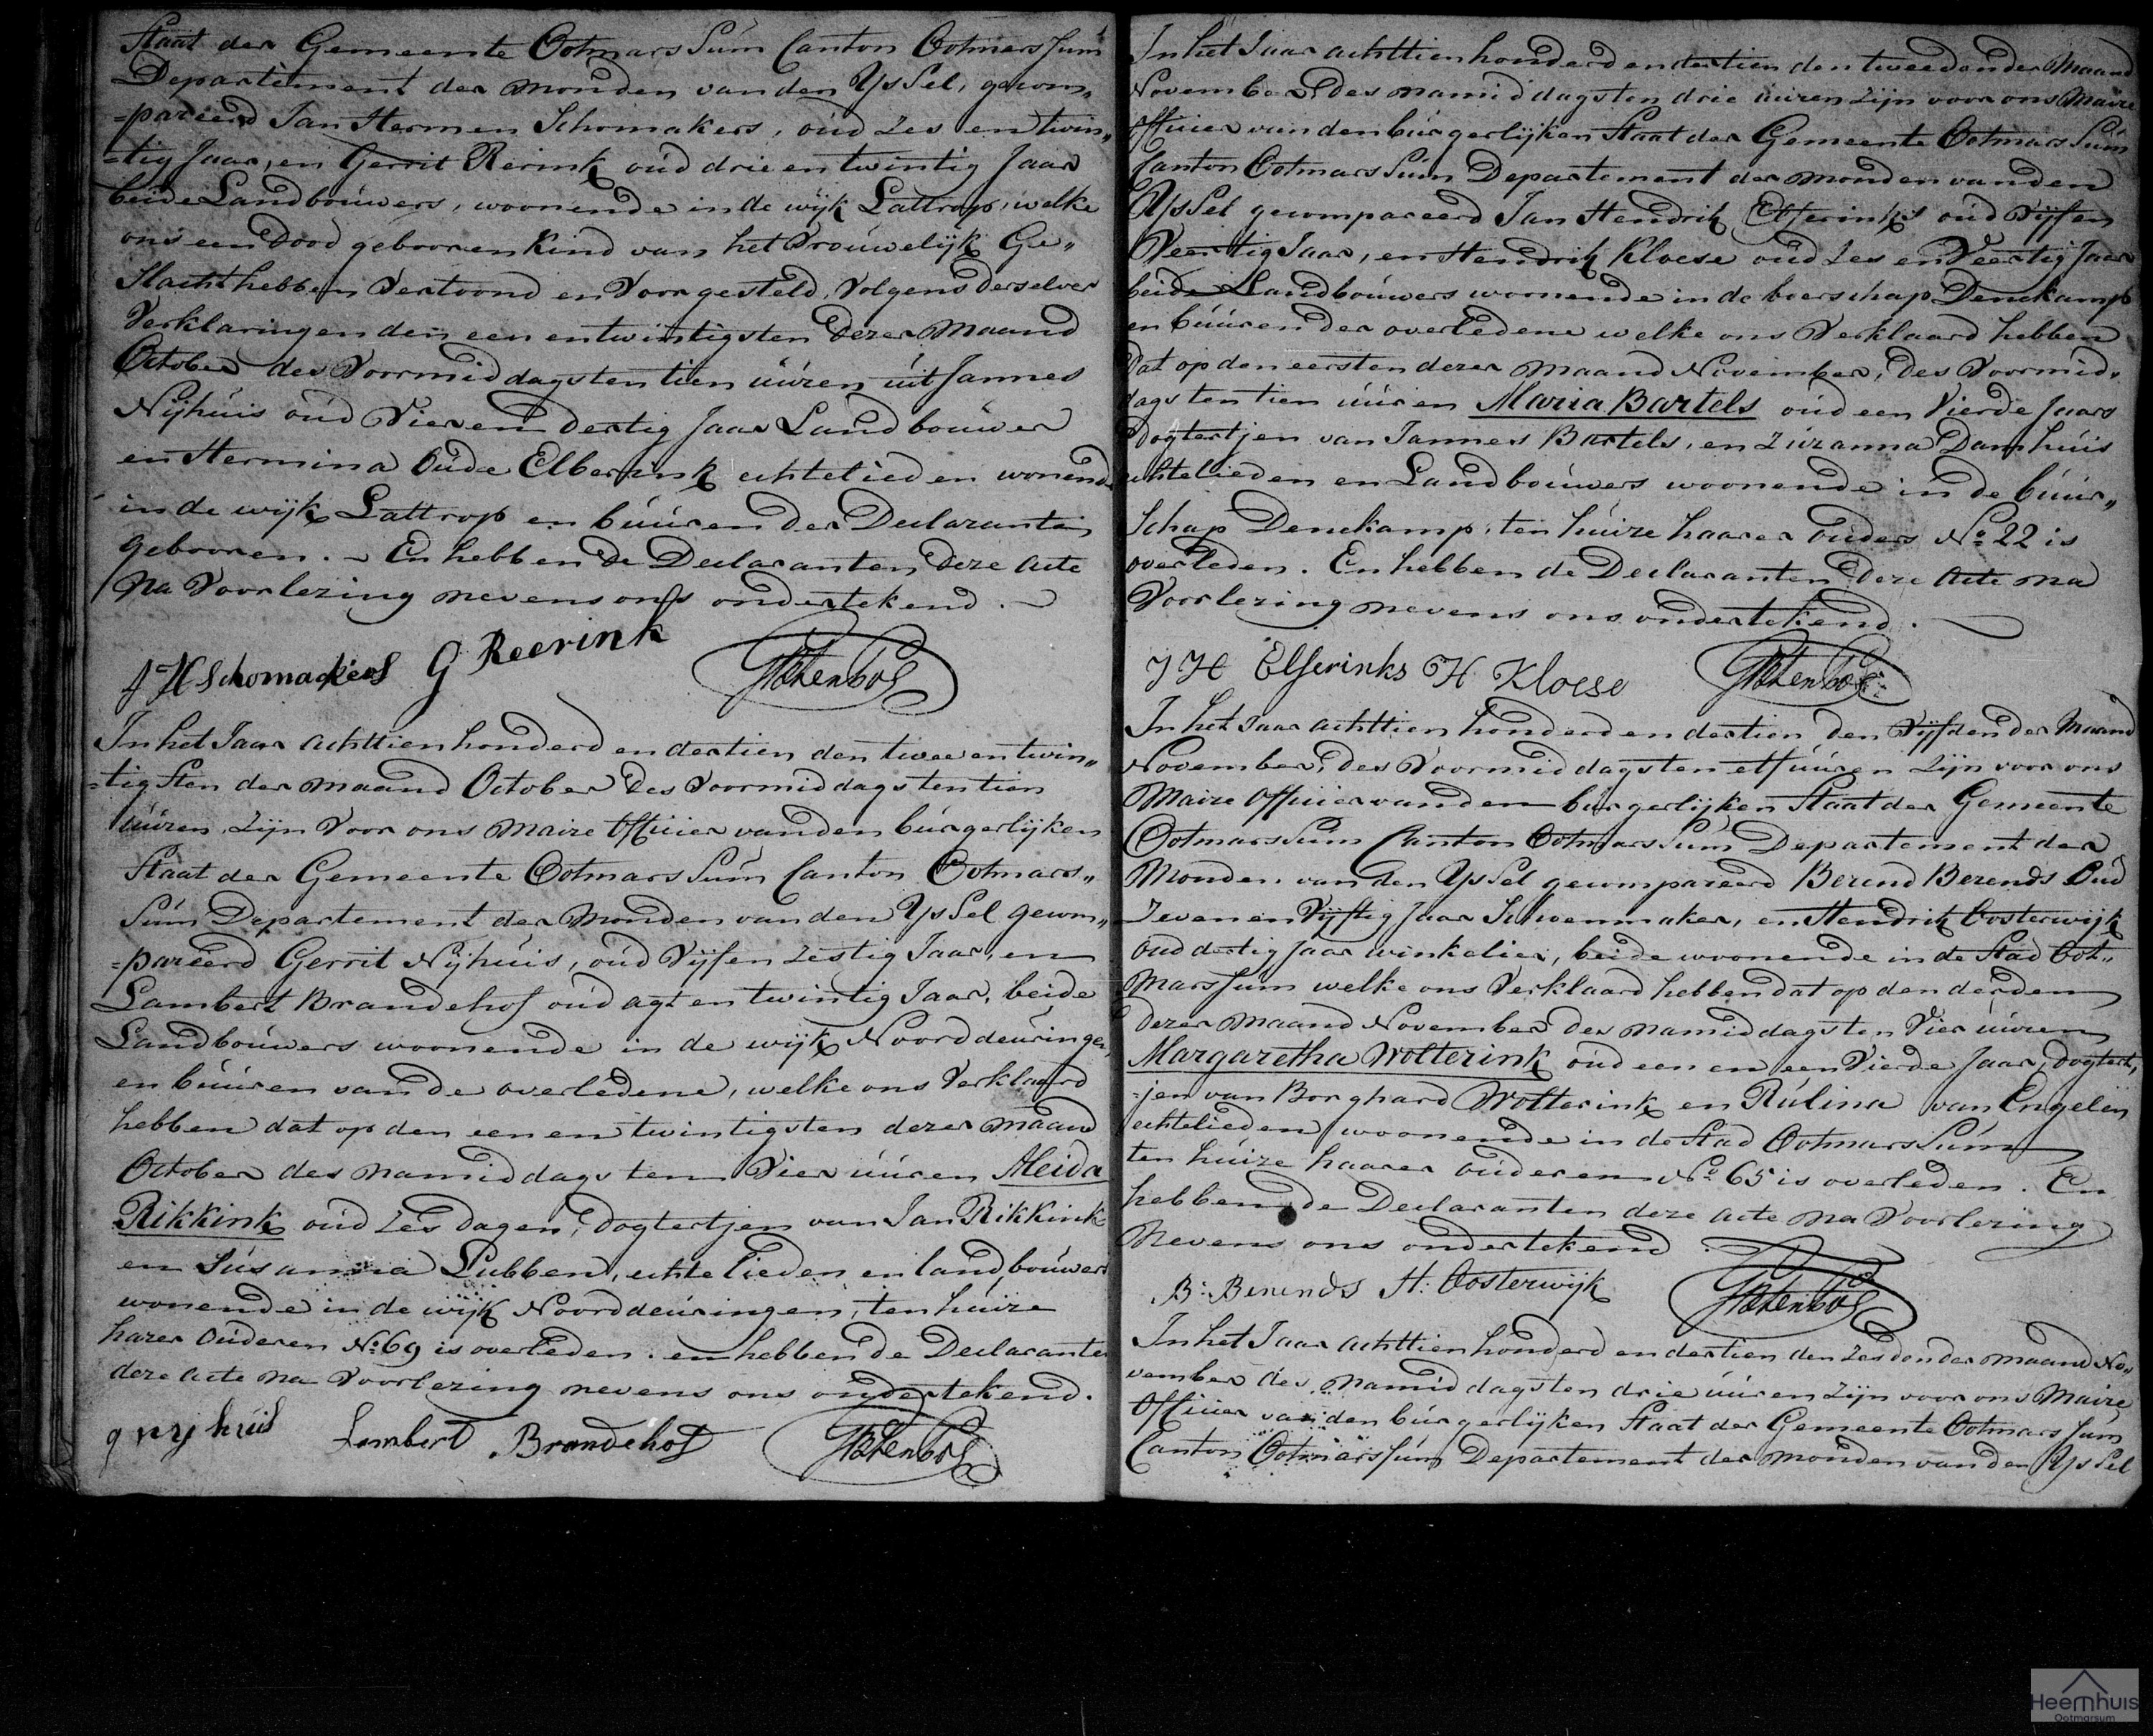 Staat der Gemeente Ootmarssum Canton Ootmarssum
Departement der monden van den Yssel, gecom„
=pareerd Jan Hermen Schomakers, oud zes en twin„
=tig Jaar, en Gerrit Rerink oud drie en twintig Jaar
beide Landbouwers, woonende in de wijk Lattrop, welke
ons een dood gebooren Kind van het Vrouwelijk Ge„
slacht hebben Vertoond en Voorgesteld, Volgens derselver
Verklaringen den een en twintigsten dezer Maand
October des Voormiddags ten tien uuren uit Jannes
Nijhuis oud Vier en dertig Jaar Landbouwer
en Hermina Oude Elberink echtelieden wonend
in de wijk Lattrop en buuren der Declaranten
gebooren. – En hebben de Declaranten deze acte
na Voorlezing nevens ons ondertekend. –
J H Schomackers G Reerink
In het Jaar achttien honderd en dertien den twee en twin„
=tigsten der maand October des Voormiddags ten tien
uuren, zijn Voor ons maire officier van den burgerlijken
Staat der Gemeente Ootmarssum Canton Ootmars„
sum Departement der Monden van den Yssel gecom„
=pareerd Gerrit Nijhuis, oud Vijf en zestig Jaar, en
Lambert Brandehof oud agt en twintig Jaar, beide
Landbouwers woonende in de wijk Noorddeuringen,
en buuren van de overledene, welke ons Verklaard
hebben dat op den een en twintigsten dezer maand
October des namiddags ten Vier uuren Aleida
Rikkink oud zes dagen, dogtertjen van Jan Rikkink
en Susanna Lubben, echtelieden en landbouwers
wonende in de wijk Noorddeuringen, ten huize
harer Ouderen No 69 is overleden. en hebben de Declaranten
deze acte na Voorlezing nevens ons ondertekend.
g nyhuis Lambert Brandehof
In het Jaar achttien honderd en dertien den tweeden der Maand
November des namiddags ten drie uuren zijn voor ons Maire
officier van den burgerlijken Staat der Gemeente Ootmarssum
Canton Ootmarssum Departement der monden van den
Yssel gecompareerd Jan Hendrik Elferinks oud Vijf en
Veertig Jaar, en Hendrik Kloese oud zes en Veertig Jaar
beide Landbouwers woonende in de boerschap Denekamp
en buuren der overledene welke ons Verklaard hebben
dat op den eersten dezer maand November, des Voormid„
dags ten tien uuren Maria Bartels oud een Vierde Jaars
dogtertjen van Jannes Bartels, en Zuzanna Damhuis
echtelieden en Landbouwers woonende in de buur„
schap Denekamp, ten huize haarer Ouders No 22 is
overleden. En hebben de Declaranten deze acte na
Voorlezing nevens ons ondertekend.
J H Elferinks H Kloese
In het Jaar achttien honderd en dertien den Vijfden der Maand
November, des Voormiddags ten elf uuren zijn voor ons
Maire officier van den burgerlijken Staat der Gemeente
Ootmarssum Canton Ootmarssum Departement der
Monden van den Yssel gecompareerd Berend Berends Oud
zeven en Vijftig Jaar Schoenmaker, en Hendrik Oosterwijk
oud dertig Jaar winkelier, beide woonende in de Stad Oot„
marssum welke ons Verklaard hebben dat op den derden
dezer maand November des namiddags ten Vier uuren
Margaretha Wolterink oud een en een Vierde Jaar, dogtert„
=jen van Borghard Wolterink en Rulina van Engelen
echtelieden woonende in de Stad Ootmarssum
ten huize haarer ouderen No 65 is overleden. En
hebben de Declaranten deze acte na Voorlezing
Nevens ons ondertekend.
B: Berends H: Oosterwijk
In het Jaar achttien honderd en dertien den zesden der maand No„
vember des namiddags ten drie uuren zijn voor ons Maire
officier van den burgerlijken Staat der Gemeente Ootmarssum
Canton Ootmarssum Departement der monden van den Yssel
Heemhuis
Ootmarsum